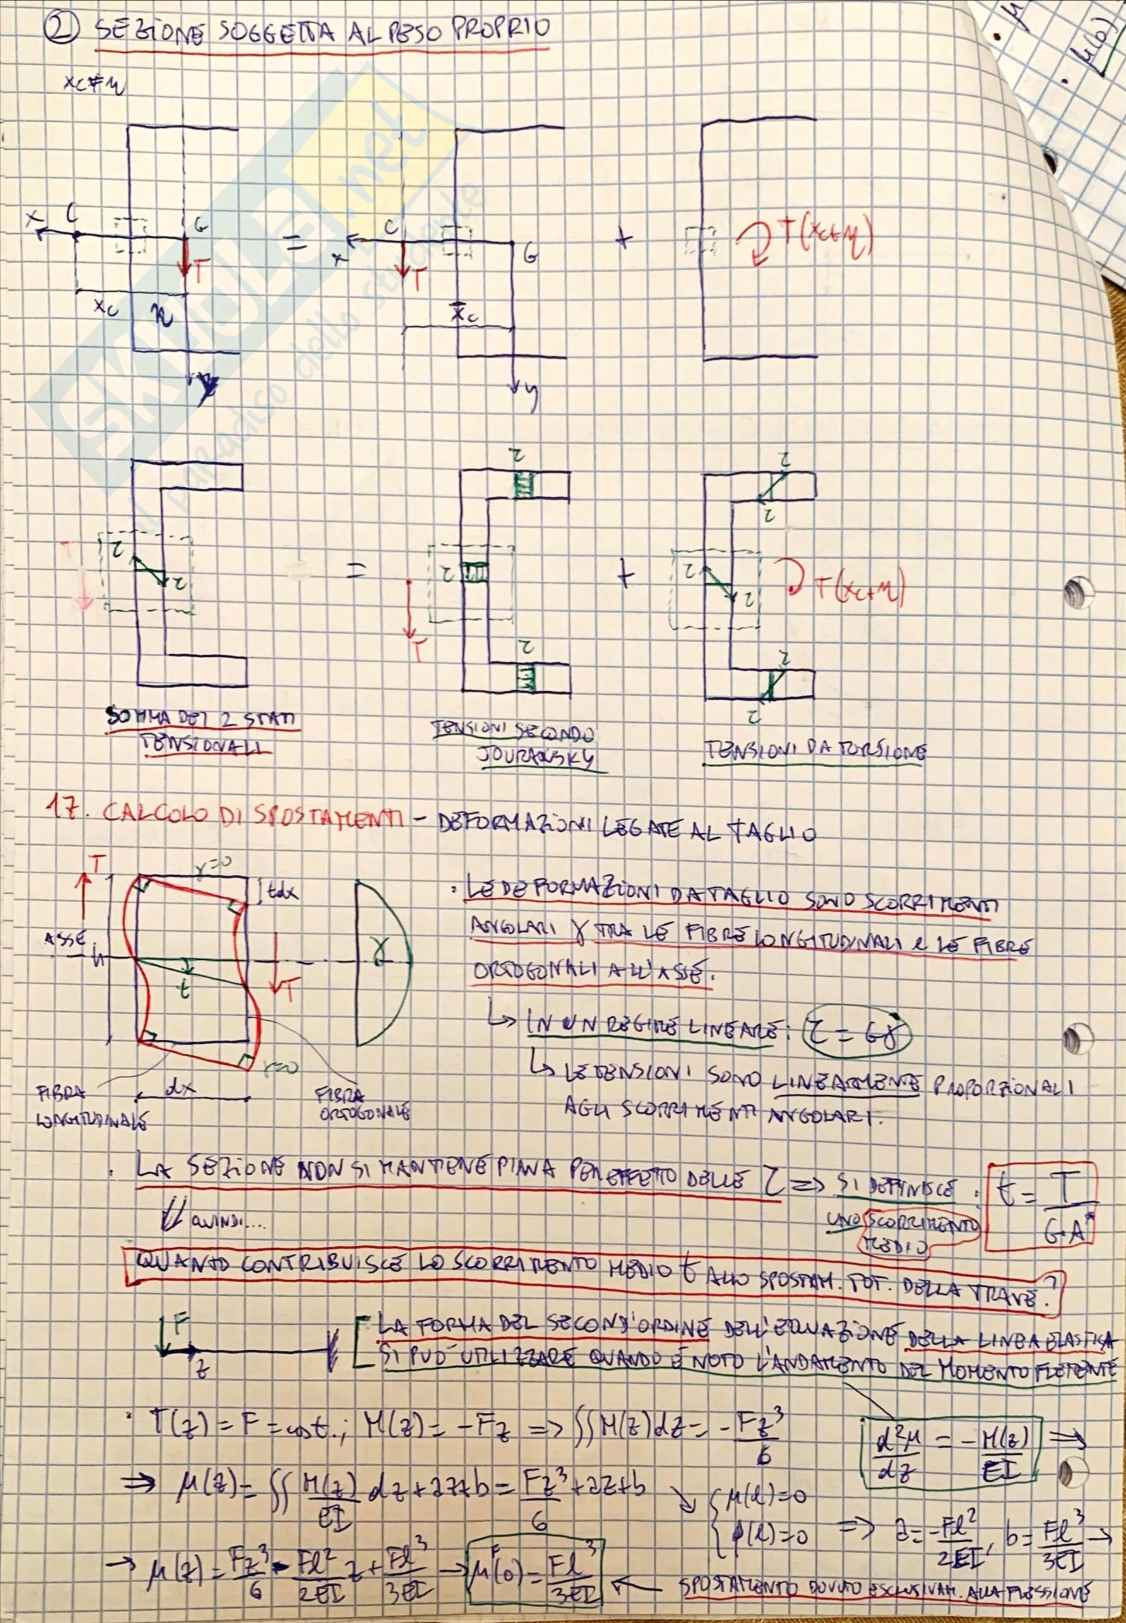 ② SEZIONE SOGGETTA AL PESO PROPRIO
μ(0)
x C G T = x C G T + T(xc+η)
xc η xc
y y
τ τ τ
τ τ = τ + τ τ T(xc+η)
T T
τ τ τ
SOMMA DEI 2 STATI
TENSIONALI
TENSIONI SECONDO
JOURAWSKY
TENSIONI DA TORSIONE
17. CALCOLO DI SPOSTAMENTI - DEFORMAZIONI LEGATE AL TAGLIO
T γ=0 tdx
ASSE t T γ
γ=0
FIBRA
LONGITUDINALE
dx
FIBRA
ORTOGONALE
· LE DEFORMAZIONI DA TAGLIO SONO SCORRIMENTI
ANGOLARI γ TRA LE FIBRE LONGITUDINALI e LE FIBRE
ORTOGONALI ALL'ASSE.
↳ IN UN REGIME LINEARE: τ = Gγ
↳ LE TENSIONI SONO LINEARMENTE PROPORZIONALI
AGLI SCORRIMENTI ANGOLARI.
· LA SEZIONE NON SI MANTIENE PIANA PER EFFETTO DELLE τ => SI DEFINISCE: t = T/GA*
UNO SCORRIMENTO
MEDIO
⇓ QUINDI...
QUANTO CONTRIBUISCE LO SCORRIMENTO MEDIO t ALLO SPOSTAM. TOT. DELLA TRAVE?
F z
LA FORMA DEL SECOND'ORDINE DELL'EQUAZIONE DELLA LINEA ELASTICA
SI PUÒ UTILIZZARE QUANDO È NOTO L'ANDAMENTO DEL MOMENTO FLETTENTE
· T(z) = F = cost.; M(z) = -Fz => ∬M(z)dz = -Fz³/6
d²μ/dz = -M(z)/EI =>
=> μ(z) = ∬ M(z)/EI dz + az + b = Fz³/6 + az + b ↘ { μ(l)=0 φ(l)=0 => a = -Fl²/2EI, b = Fl³/3EI →
→ μ(z) = Fz³/6 - Fl²/2EI z + Fl³/3EI → μF(0) = Fl³/3EI ← SPOSTAMENTO DOVUTO ESCLUSIVAM. ALLA FLESSIONE